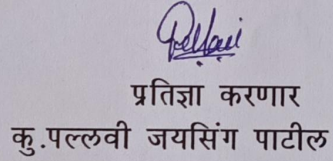 Pallavi
प्रतिज्ञा करणार
कु.पल्लवी जयसिंग पाटील